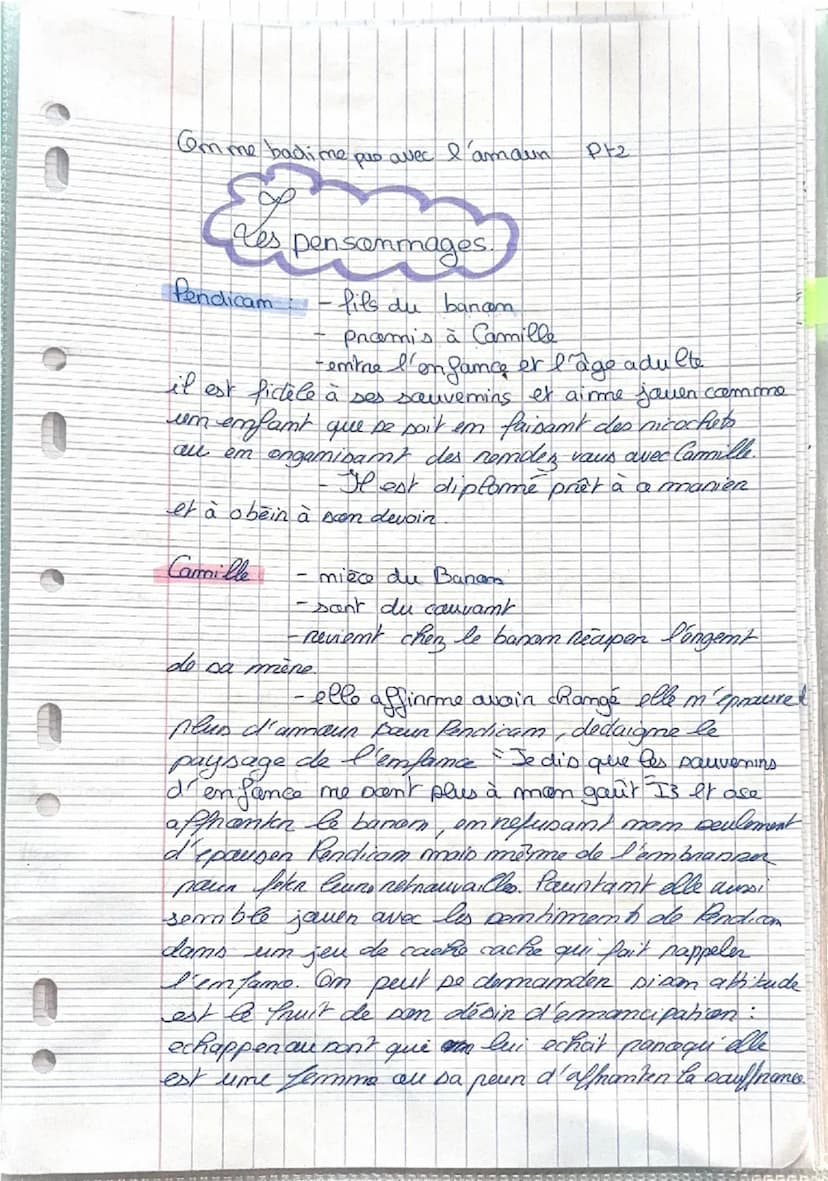 On ne badine pas avec l'amour Pt2
Les personnages.
Perdican : - fils du baron
- promis à Camille
- entre l'enfance et l'âge adulte
il est fidèle à ses souvenirs et aime jouer comme
un enfant que se soit en faisant des ricochets
ou en organisant des rendez vous avec Camille.
- Il est diplomé prêt à a marier
et à obéir à son devoir.
Camille - nièce du Baron
- sort du couvant
- revient chez le baron récuper l'argent
de sa mère.
- elle affirme avoir changé elle n'éprouve
plus d'amour pour Perdican, dedaigne le
paysage de l'enfance "Je dis que les souvenirs
d'enfance ne sont plus à mon goût" I3 et ose
affronter le baron, en refusant non seulement
d'epouser Perdican mais même de l'embrasser
pour fêter leurs retrouvailles. Pourtant elle aussi
semble jouer avec les sentiments de Perdican
dans un jeu de cache cache qui fait rappeler
l'enfance. On peut se demander si son attitude
est le fruit de son désir d'émancipation :
echapper au sort qui lui echoit parcequ'elle
est une femme ou sa peur d'affronter la souffrance.